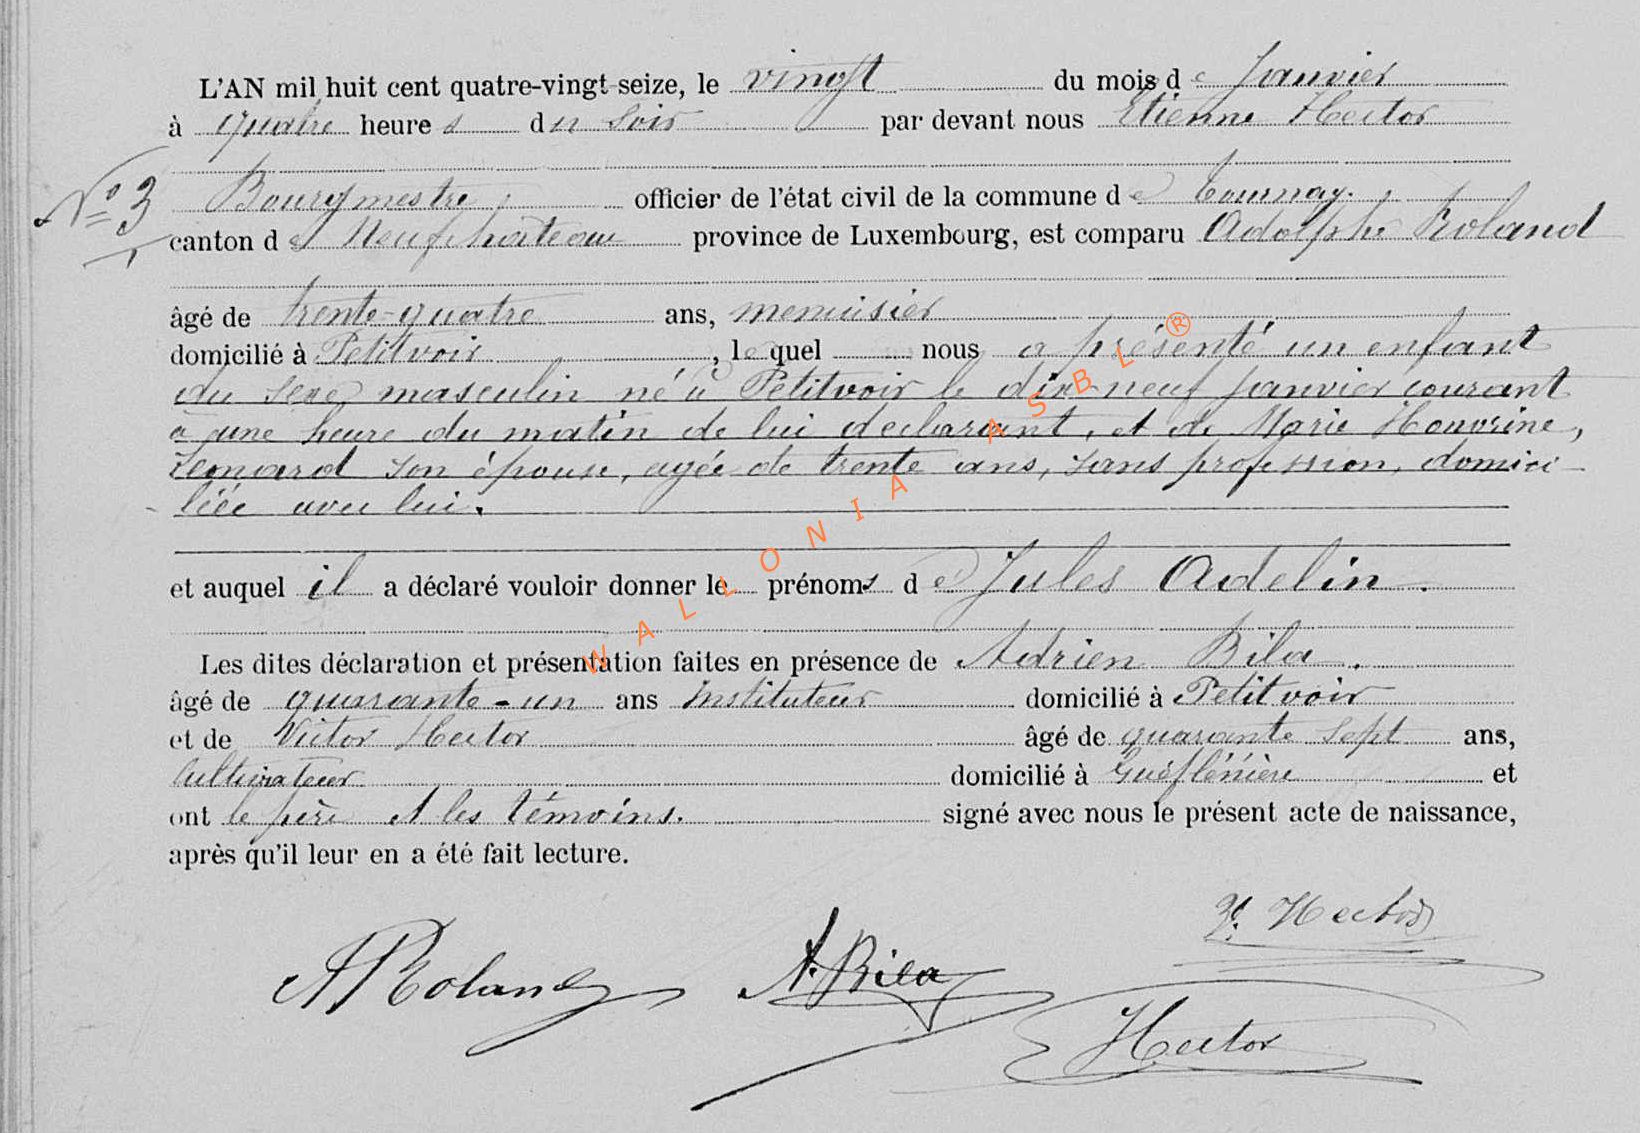 L'AN mil huit cent quatre-vingt-seize, le vingt du mois de Janvier
à quatre heures du soir par devant nous Etienne Hector
N° 3
Bourgmestre, officier de l'état civil de la commune de Tournay,
canton de Neufchâteau province de Luxembourg, est comparu Adolphe Roland
âgé de trente-quatre ans, menuisier
domicilié à Petitvoir, lequel nous a présenté un enfant
du sexe masculin né à Petitvoir le dix-neuf janvier courant
à une heure du matin de lui déclarant, et de Marie
son épouse, agée de trente ans, sans profession, domici-
liée avec lui.
et auquel il a déclaré vouloir donner le prénoms de Jules Adelin.
Les dites déclaration et présentation faites en présence de Adrien Bila.
âgé de quarante-un ans instituteur domicilié à Petitvoir
et de Victor Hector âgé de quarante sept ans,
Cultivateur domicilié à et
ont le père et les témoins. signé avec nous le présent acte de naissance,
après qu'il leur en a été fait lecture.
V. Hector
A Roland A. Bila
Hector
WALLONIA ASBL ®